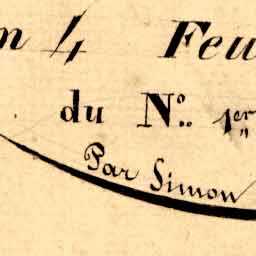 n 4 Feu
du N.º 1er
Par Simon